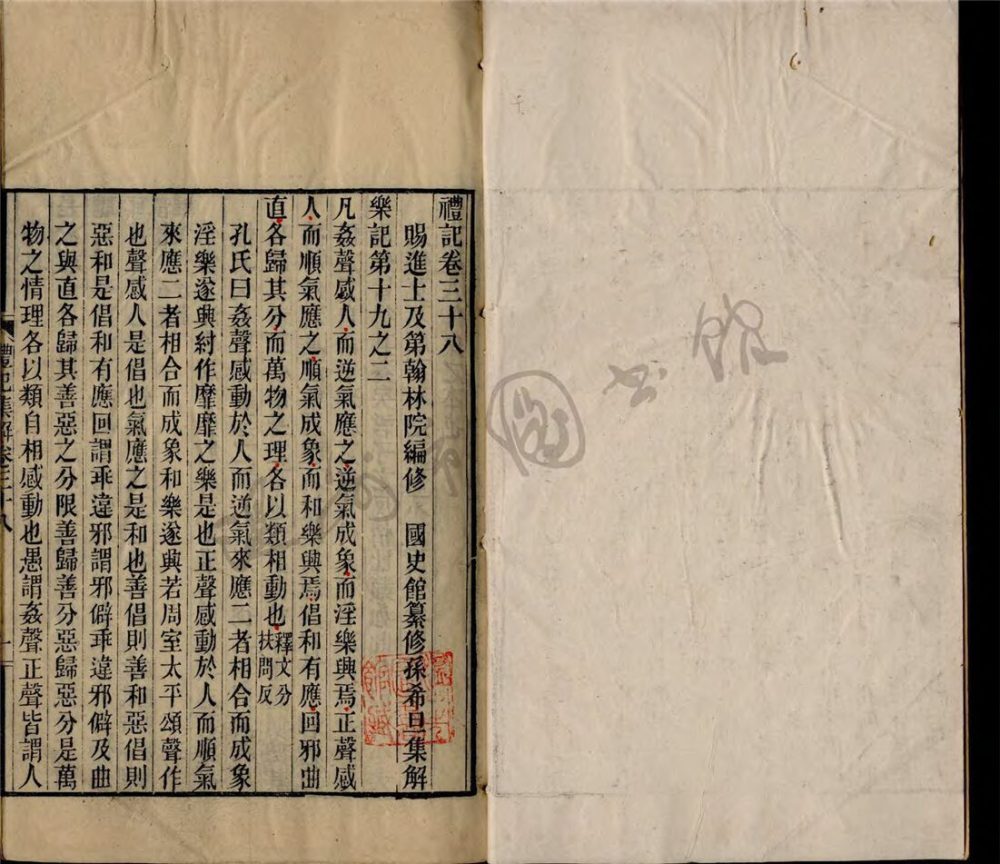 禮記卷三十八
賜進士及第翰林院編修 國史館纂修孫希旦集解
樂記第十九之二
凡姦聲感人而逆氣應之逆氣成象而淫樂興焉正聲感
人而順氣應之順氣成象而和樂興焉倡和有應回邪曲
直各歸其分而萬物之理各以類相動也釋文分扶問反
孔氏曰姦聲感動於人而逆氣來應二者相合而成象
淫樂遂興紂作靡靡之樂是也正聲感動於人而順氣
來應二者相合而成象和樂遂興若周室太平頌聲作
也聲感人是倡也氣應之是和也善倡則善和惡倡則
惡和是倡和有應回謂乖違邪謂邪僻乖違邪僻及曲
之與直各歸其善惡之分限善歸善分惡歸惡分是萬
物之情理各以類自相感動也愚謂姦聲正聲皆謂人
禮記集解卷三十八
一